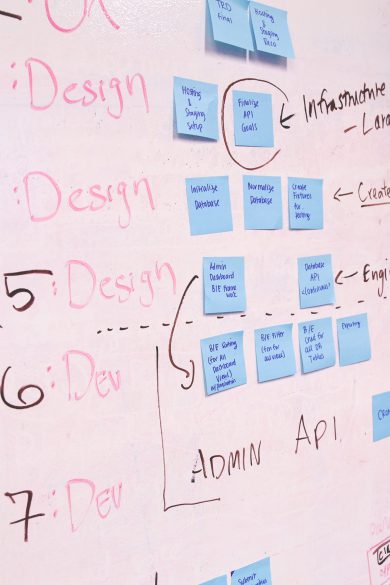 TRD
Final
Hosting
&
Staging
: Design
Hosting
&
Staging
Setup
Finalize
API
Goals
Infrastructure
: Design
Initialize
Database
Normalize
Database
Create
Fixtures
for
testing
Create
5 : Design
Admin
Dashboard
B/E Frame
work
Database
API
<continuous>
6 : Dev
B/E Routing
(for All
Dashboard
Views)
B/E Filter
B/E
for
all DB
Tables
Exporting
ADMIN API
7 : Dev
Submit